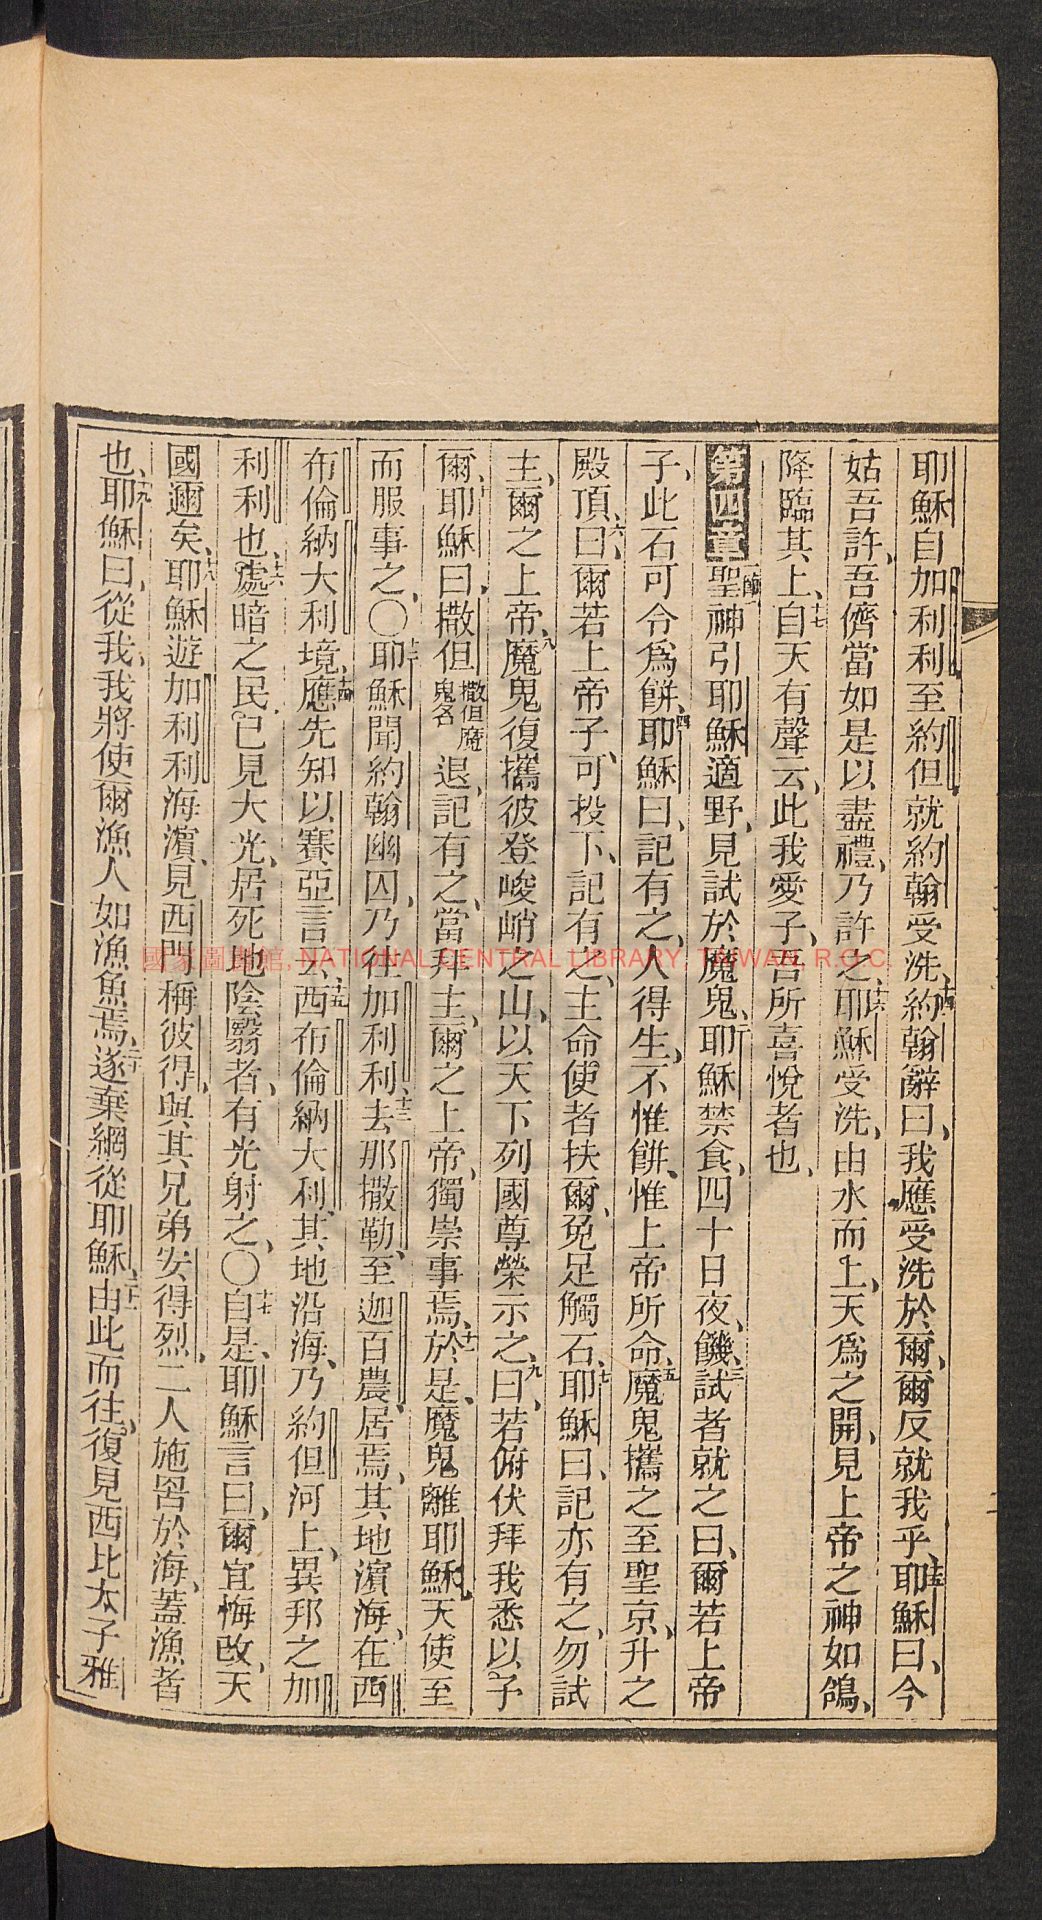 耶穌自加利利至約但就約翰受洗、十四約翰辭曰、我應受洗於爾、爾反就我乎、十五耶穌曰、今
姑吾許、吾儕當如是以盡禮、乃許之、十六耶穌受洗、由水而上、天爲之開、見上帝之神如鴿、
降臨其上、十七自天有聲云、此我愛子、吾所喜悅者也、
第四章一節聖神引耶穌適野、見試於魔鬼、二耶穌禁食、四十日夜、饑、三試者就之曰、爾若上帝
子、此石可令爲餅、四耶穌曰、記有之、人得生、不惟餅、惟上帝所命、五魔鬼攜之至聖京、升之
殿頂、六曰、爾若上帝子、可投下、記有之、主命使者扶爾、免足觸石、七耶穌曰、記亦有之、勿試
主、爾之上帝、八魔鬼復攜彼登峻峭之山、以天下列國尊榮示之、九曰、若俯伏拜我、悉以予
爾、十耶穌曰、撒但撒但魔鬼名退、記有之、當拜主、爾之上帝、獨崇事焉、十一於是、魔鬼離耶穌、天使至
而服事之、〇十二耶穌聞約翰幽囚、乃往加利利、十三去那撒勒、至迦百農、居焉、其地濱海、在西
布倫納大利境、十四應先知以賽亞言云、十五西布倫納大利、其地沿海、乃約但河上、異邦之加
利利也、十六處暗之民、已見大光、居死地陰翳者、有光射之、〇十七自是、耶穌言曰、爾宜悔改、天
國邇矣、十八耶穌遊加利利海濱、見西門稱彼得、與其兄弟安得烈、二人施罟於海、蓋漁者
也、十九耶穌曰、從我、我將使爾漁人如漁魚焉、二十遂棄網從耶穌、二十一由此而往、復見西比太子雅
國家圖書館, NATIONAL CENTRAL LIBRARY, TAIWAN, R.O.C.